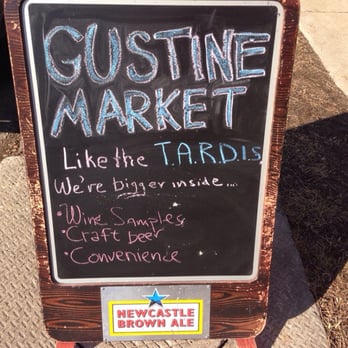 GUSTINE
MARKET
Like the T.A.R.D.I.S
We're bigger inside...
• Wine Samples
• Craft beer
• Convenience
NEWCASTLE
BROWN ALE